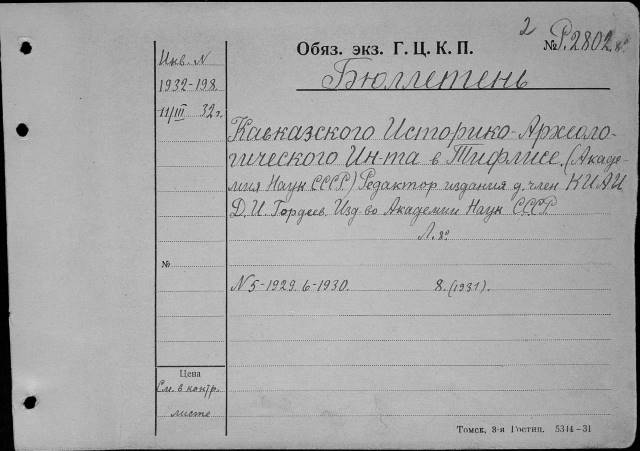 2
Обяз. экз. Г. Ц. К. П.
№ Р.2802.8°.
Бюллетень
Инв. N
1932-198.
11/III 32 г.
Кавказского Историко-Археоло-
гического Ин-та в Тифлисе. (Акаде-
мия Наук СССР) Редактор издания д. член КИАИ
Д. И. Гордеев. Изд-во Академии Наук СССР.
Л. 8°.
№
N 5-1929. 6-1930. 8. (1931).
Цена
См. в контр.
листе
Томск, 3-я Гостип. 5344-31